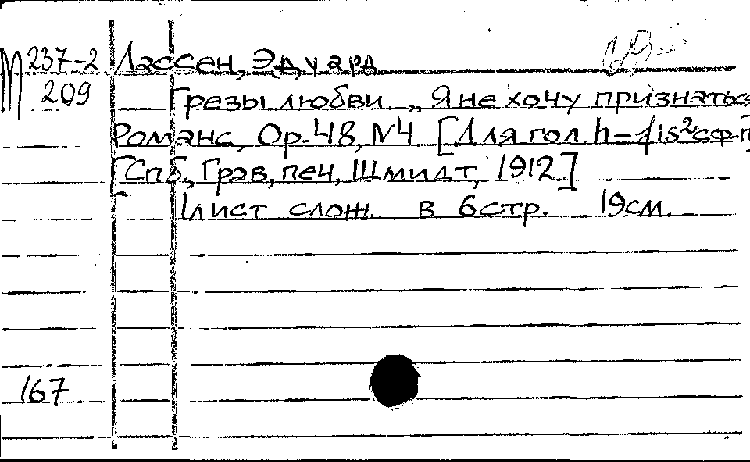 М 237-2 Лассен, Эдуард
209 Грезы любви „Я не хочу признаться
Романс, Op. 48, N4 [Для гол. h-fis² с ф-п]
[Спб., Грав. печ. Шмидт, 1912]
1 лист слож. в 6 стр. 19 см.
167